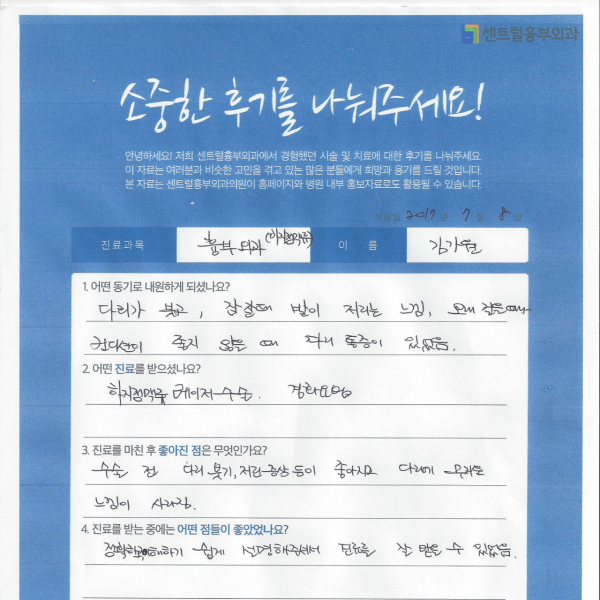 센트럴흉부외과
소중한 후기를 나눠주세요!
안녕하세요! 저희 센트럴흉부외과에서 경험했던 시술 및 치료에 대한 후기를 나눠주세요.
이 자료는 여러분과 비슷한 고민을 겪고 있는 많은 분들에게 희망과 용기를 드릴 것입니다.
본 자료는 센트럴흉부외과의원이 홈페이지와 병원 내부 홍보자료로도 활용될 수 있습니다.
작성일 2017 년 7 월 8 일
진료과목 흉부외과 (하지정맥류) 이 름
1. 어떤 동기로 내원하게 되셨나요?
다리가 붓고, 잠잘때 발이 저리는 느낌, 오래
컨디션이 좋지 않을 때 다리 통증이 있었음.
2. 어떤 진료를 받으셨나요?
하지정맥류 레이저수술. 경화요법
3. 진료를 마친 후 좋아진 점은 무엇인가요?
수술 전 다리 붓기, 저린증상 등이 좋아지고 다리에
느낌이 사라짐.
4. 진료를 받는 중에는 어떤 점들이 좋았었나요?
정확하고 이해하기 쉽게 설명해주셔서 진료를 잘 받을 수 있었음.